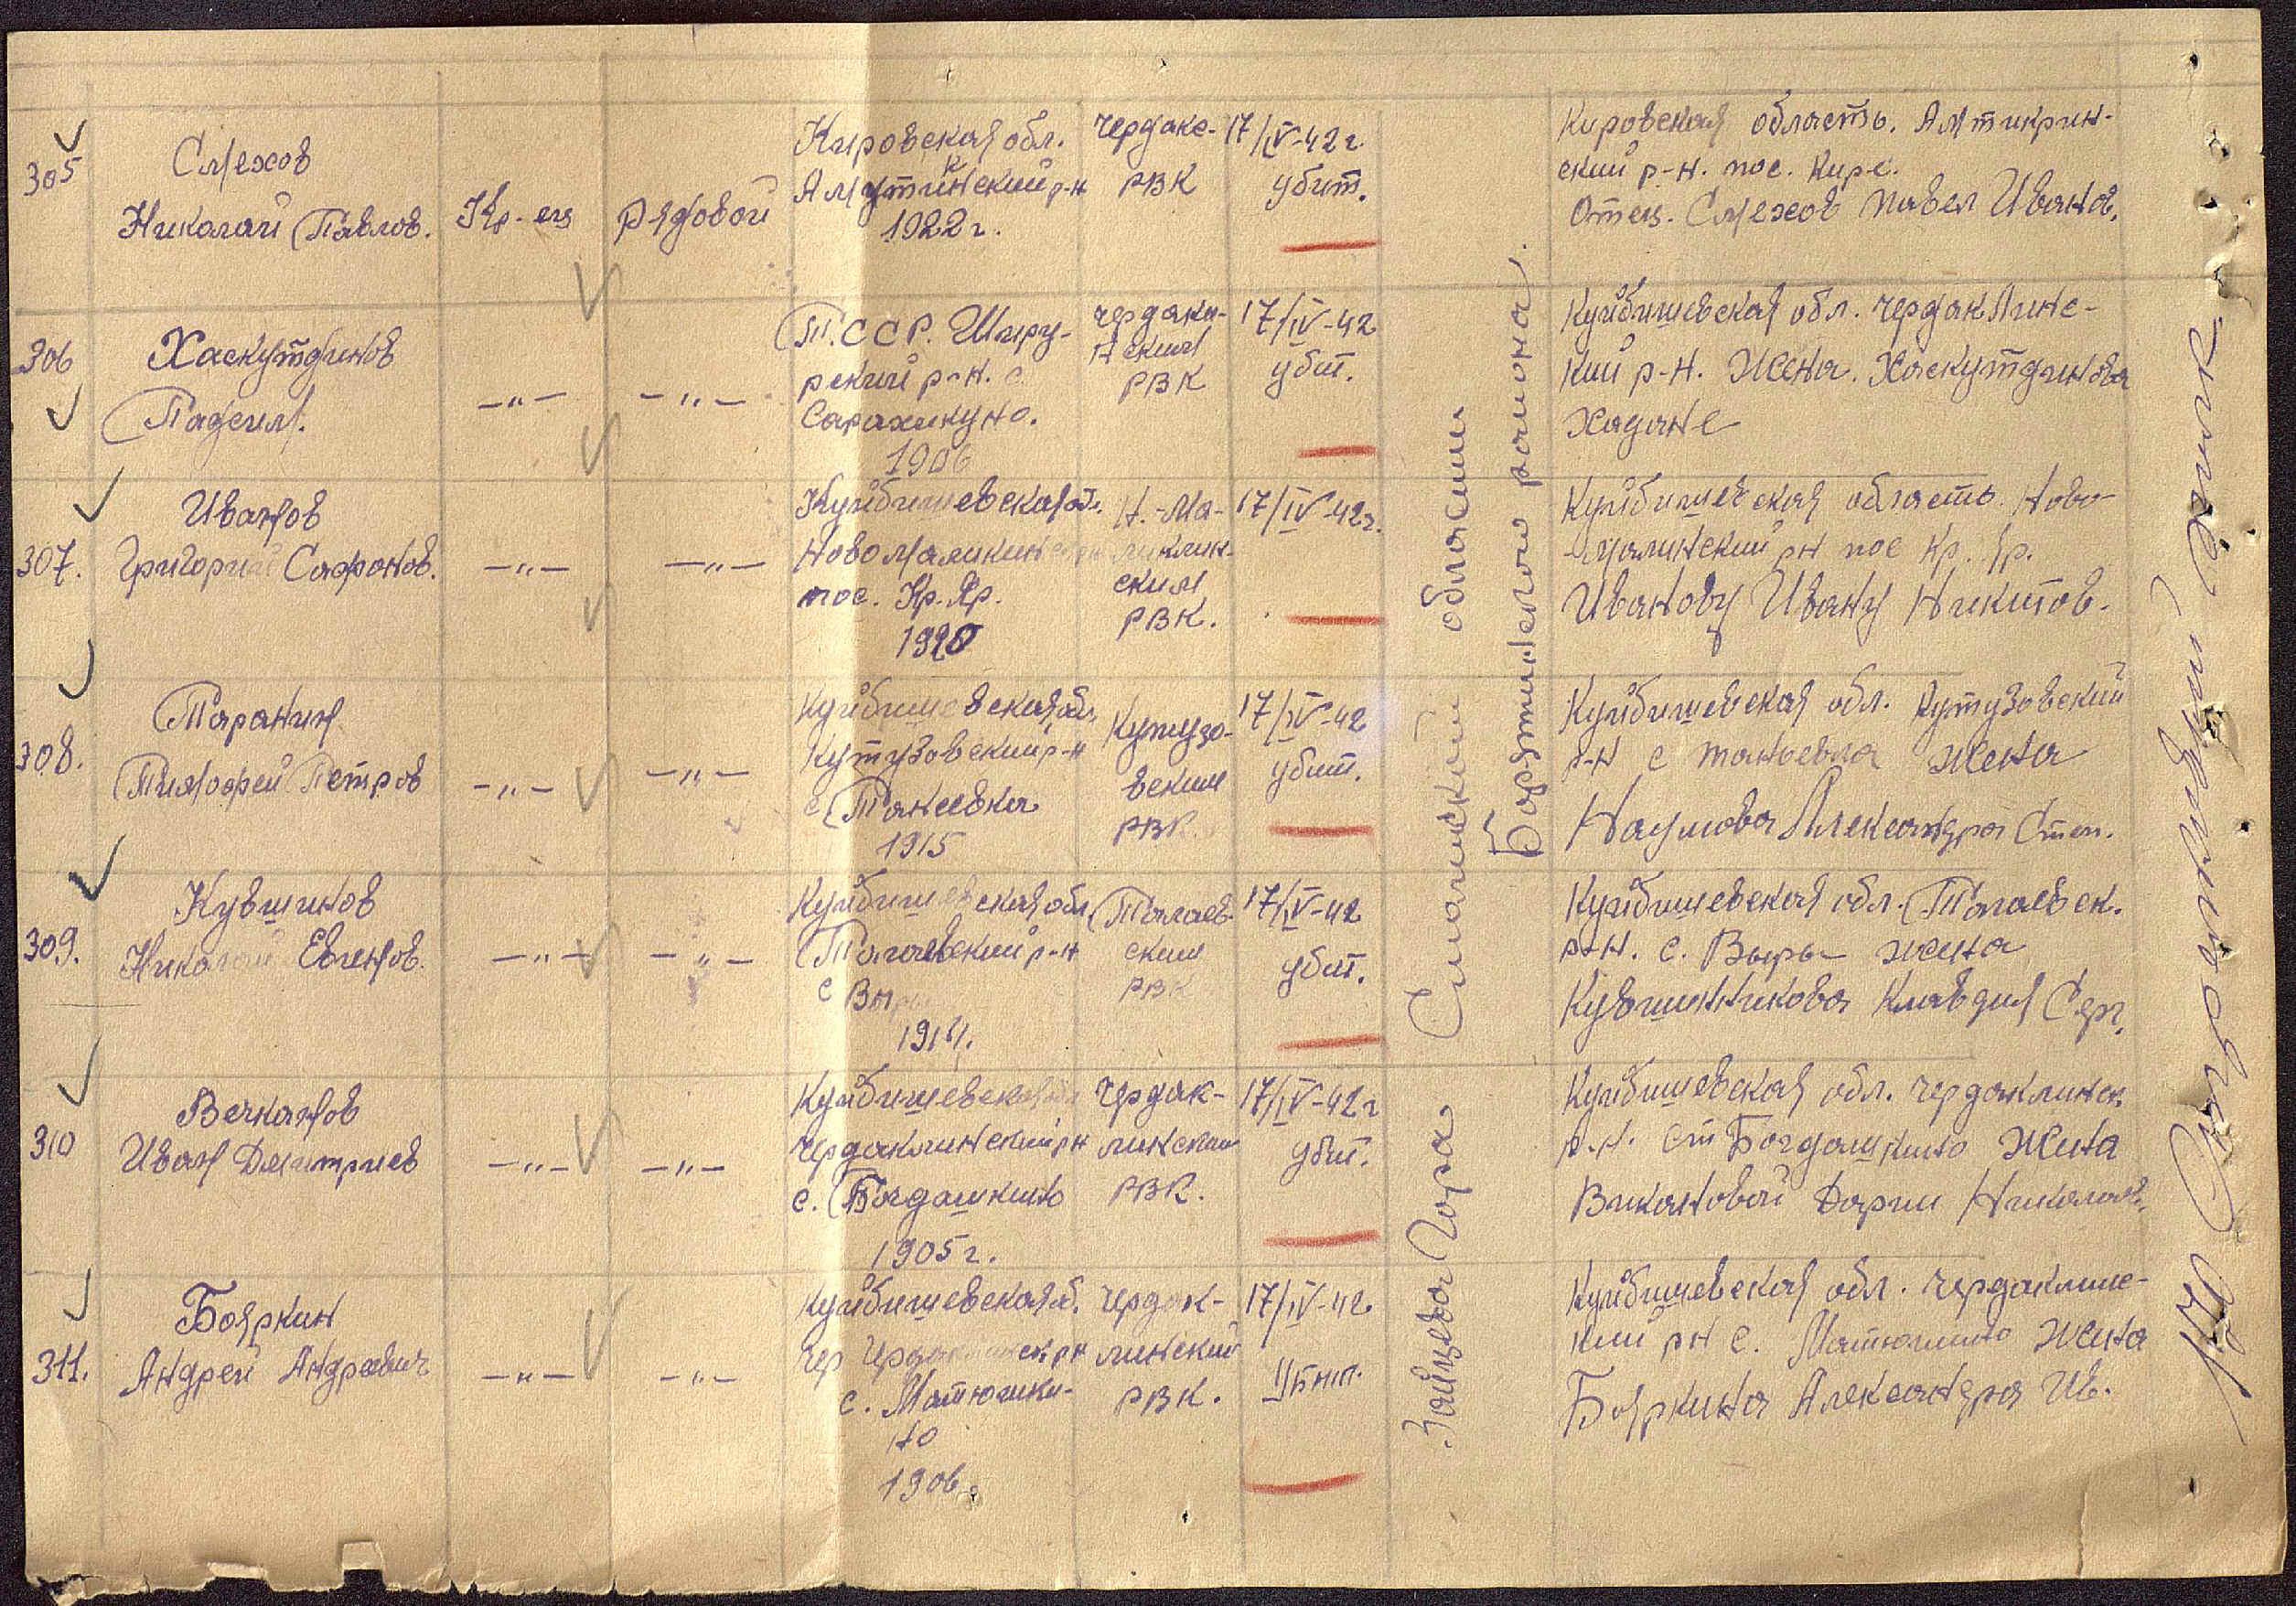 305
Смехов
Николай Павлов.
Кр-ец
Рядовой
Кировская обл.
Амутинский р-н
к
1922 г.
Чердакс-
РВК
17/IV-42 г.
убит.
Кировская область. Амтикрин-
ский р-н. пос. Кирс.
Отец. Смехов Павел Иванов.
306
Хаскутдинов
—"— —"—
Т.ССР.
рский р-н. с.
1906
чердакли-
нский
РВК
17/IV-42
убит.
Куйбишевская обл. Чердаклинс-
кий р-н. Жена. Хаскутдинова
Хадане
307.
Иванов
Григорий Сафонов.
—"— —"—
Куйбишевская об.
Ново Маликинск
пос. Кр. Яр.
1920
Н.-Ма-
ликлин-
ским
РВК.
17/IV-42г.
Куйбишевская область. Ново-
-малинский рн пос Кр. Яр.
Иванову Ивану Никитов.
308.
Таранин
Тимофей Петров
—"— —"—
Куйбишевская обл.
Кутузовский р-н
с Танеевка
1915
Кутузо-
вским
РВК
17/IV-42
убит.
Куйбишевская обл. Кутузовский
р-н с жена
Наумова Александра Степ.
309.
Кувшинов
Николай Евгенов.
—"— —"—
Куйбишевская обл.
р-н
с Выры
1914.
ским
РВК
17/IV-42
убит.
Куйбишевская обл.
р-н. с. Выры жена
Кувшинникова Клавдия Серг.
310
Вечканов
Иван Дмитриев
—"— —"—
Куйбишевская обл
Чердаклинский рн
с. Богдашкино
1905 г.
Чердак-
линским
РВК.
17/IV-42 г
убит.
Куйбишевская обл. Чердаклинск
р-н. ст Богдашкино Жена
Викановой Дарии Николаев.
311.
Бояркин
Андрей Андреевич
—"— —"—
Куйбишевская об.
Чер рн
с. Матюшки-
но
1906 г
Чердак-
линский
РВК.
17/IV-42
Убит.
Куйбишевская обл. Чердаклинс-
кий рн с. Матюшкино Жена
Бояркина Александра Ив.
Зайцева Гора Смоленской области
Барятинского района.